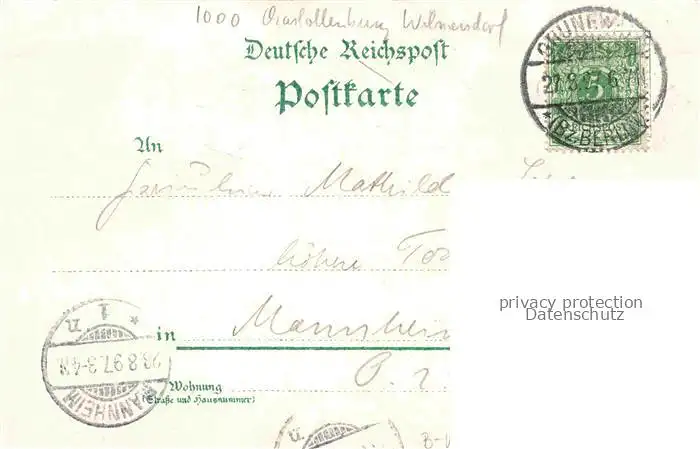 1000 Charlottenburg Wilmersdorf
Deutsche Reichspost
Postkarte
GRUNEWALD
27.8. 6-7N
5
* (BZ. BERLIN)
An
Fräulein Mathild
höhere
privacy protection
Datenschutz
* 1 n
28.8.97. 3-4N.
MANNHEIM
in Mannheim
Wohnung
(Straße und Hausnummer)